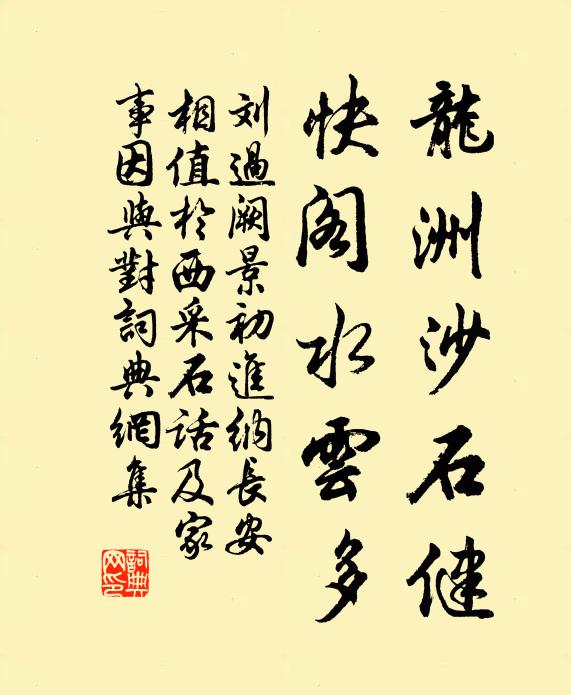 龍洲沙石健
快阁水雲多
刘過阙景初進納長安
相值於西采石話及家
事因與對詞典網集
詞典
网印